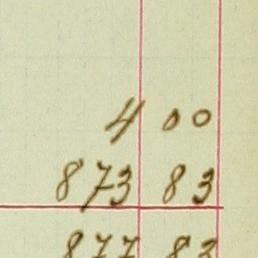 4 00
873 83
877 83